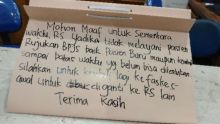 Mohon Maaf untuk Sementara
waktu, RS Yadika tidak melayani pasien
Rujukan BPJS baik Pasien Baru maupun kontrol
sampai Batas waktu yg belum bisa ditentukan
silahkan untuk kembali lagi ke faskes
awal untuk diganti ke RS lain
Terima Kasih